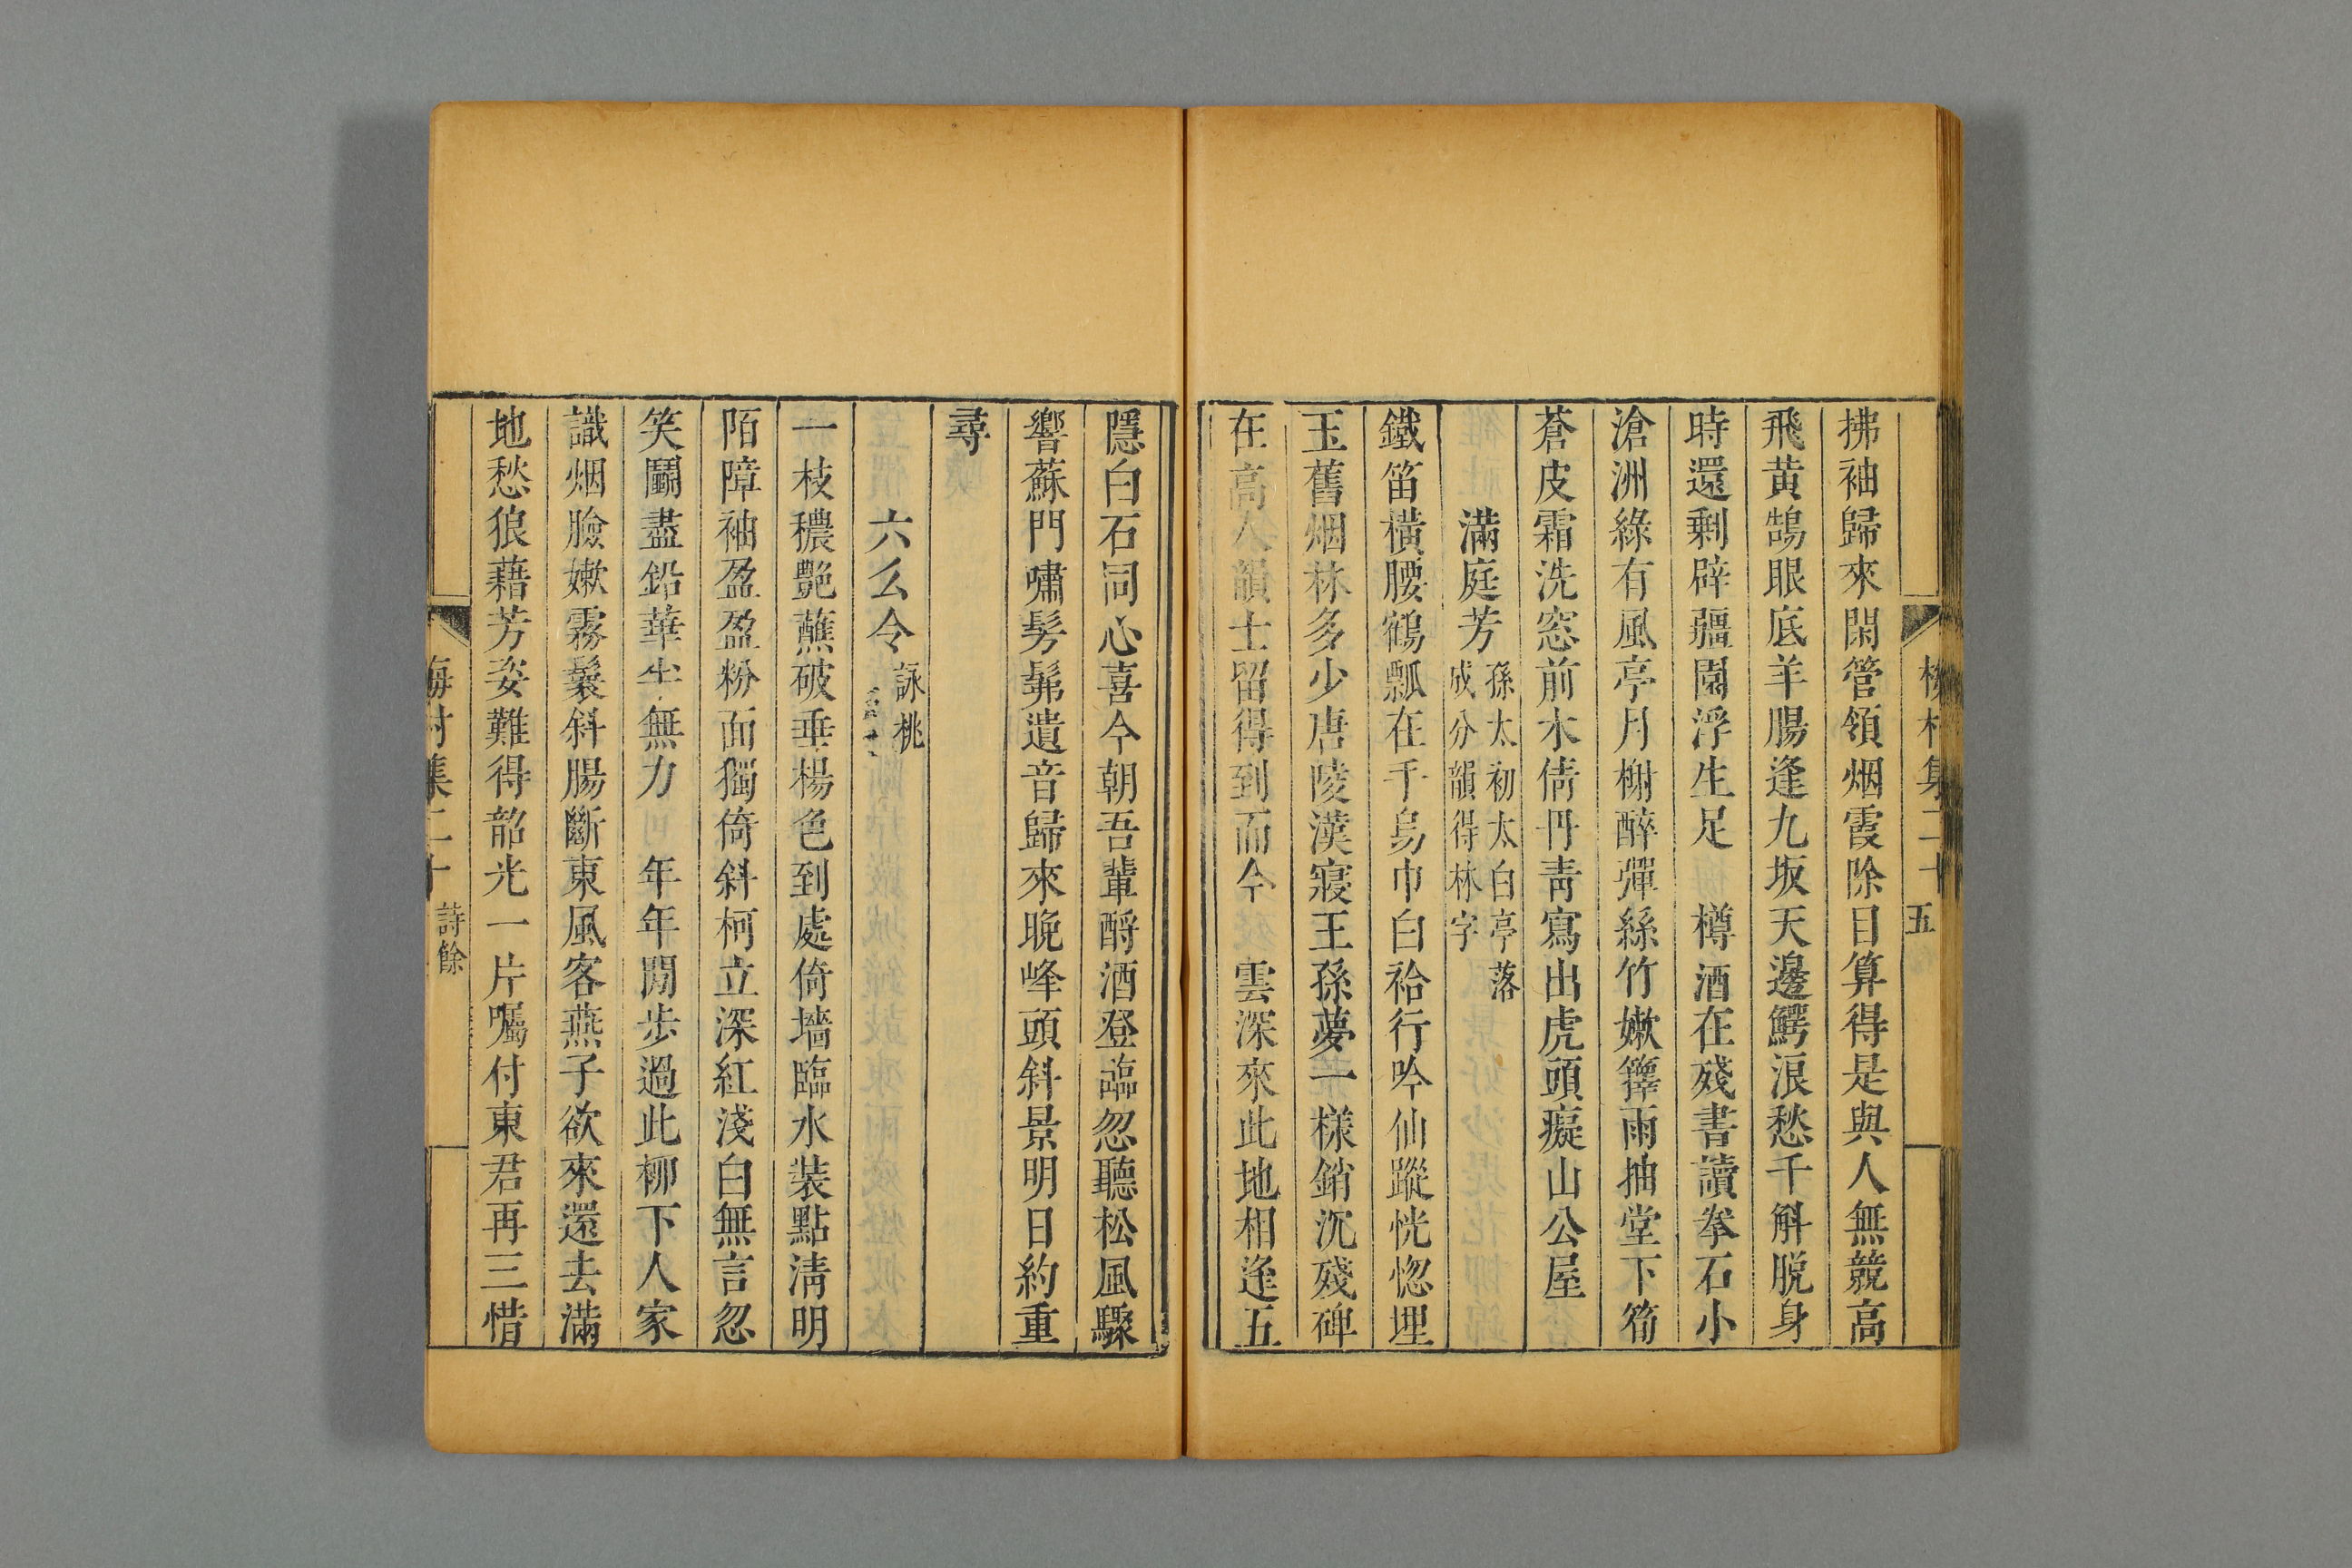 村集二十
五
拂袖歸來閑管領烟霞除日算得是與人無競高
飛黃鵠眼底羊腸逢九坂天邊鰐浪愁千斛脫身
時還剩辟疆園浮生足　樽酒在殘書讀拳石小
滄洲綠有風亭月榭醉彈絲竹嫩籜雨抽堂下筍
蒼皮霜洗窓前木倩丹靑寫出虎頭癡山公屋
滿庭芳
孫太初太白亭落
成分韻得林字
鐵笛橫腰鶴瓢在手烏巾白袷行吟仙蹤恍惚埋
玉舊烟林多少唐陵漢寢王孫夢一樣銷沉殘碑
在高人韻士留得到而今　雲深來此地相逢五
隱白石同心喜今朝吾輩酹酒登臨忽聽松風驟
響蘇門嘯髣髴遺音歸來晚峰頭斜景明日約重
尋
六么令
詠桃
一枝穠艷蘸破垂楊色到處倚墻臨水裝點淸明
陌障袖盈盈粉面獨倚斜柯立深紅淺白無言忽
笑鬭盡鉛華生無力　年年閒步過此柳下人家
識烟臉嫩霧鬟斜腸斷東風客燕子欲來還去滿
地愁狼藉芳姿難得韶光一片囑付東君再三惜
梅村集二十
詩餘